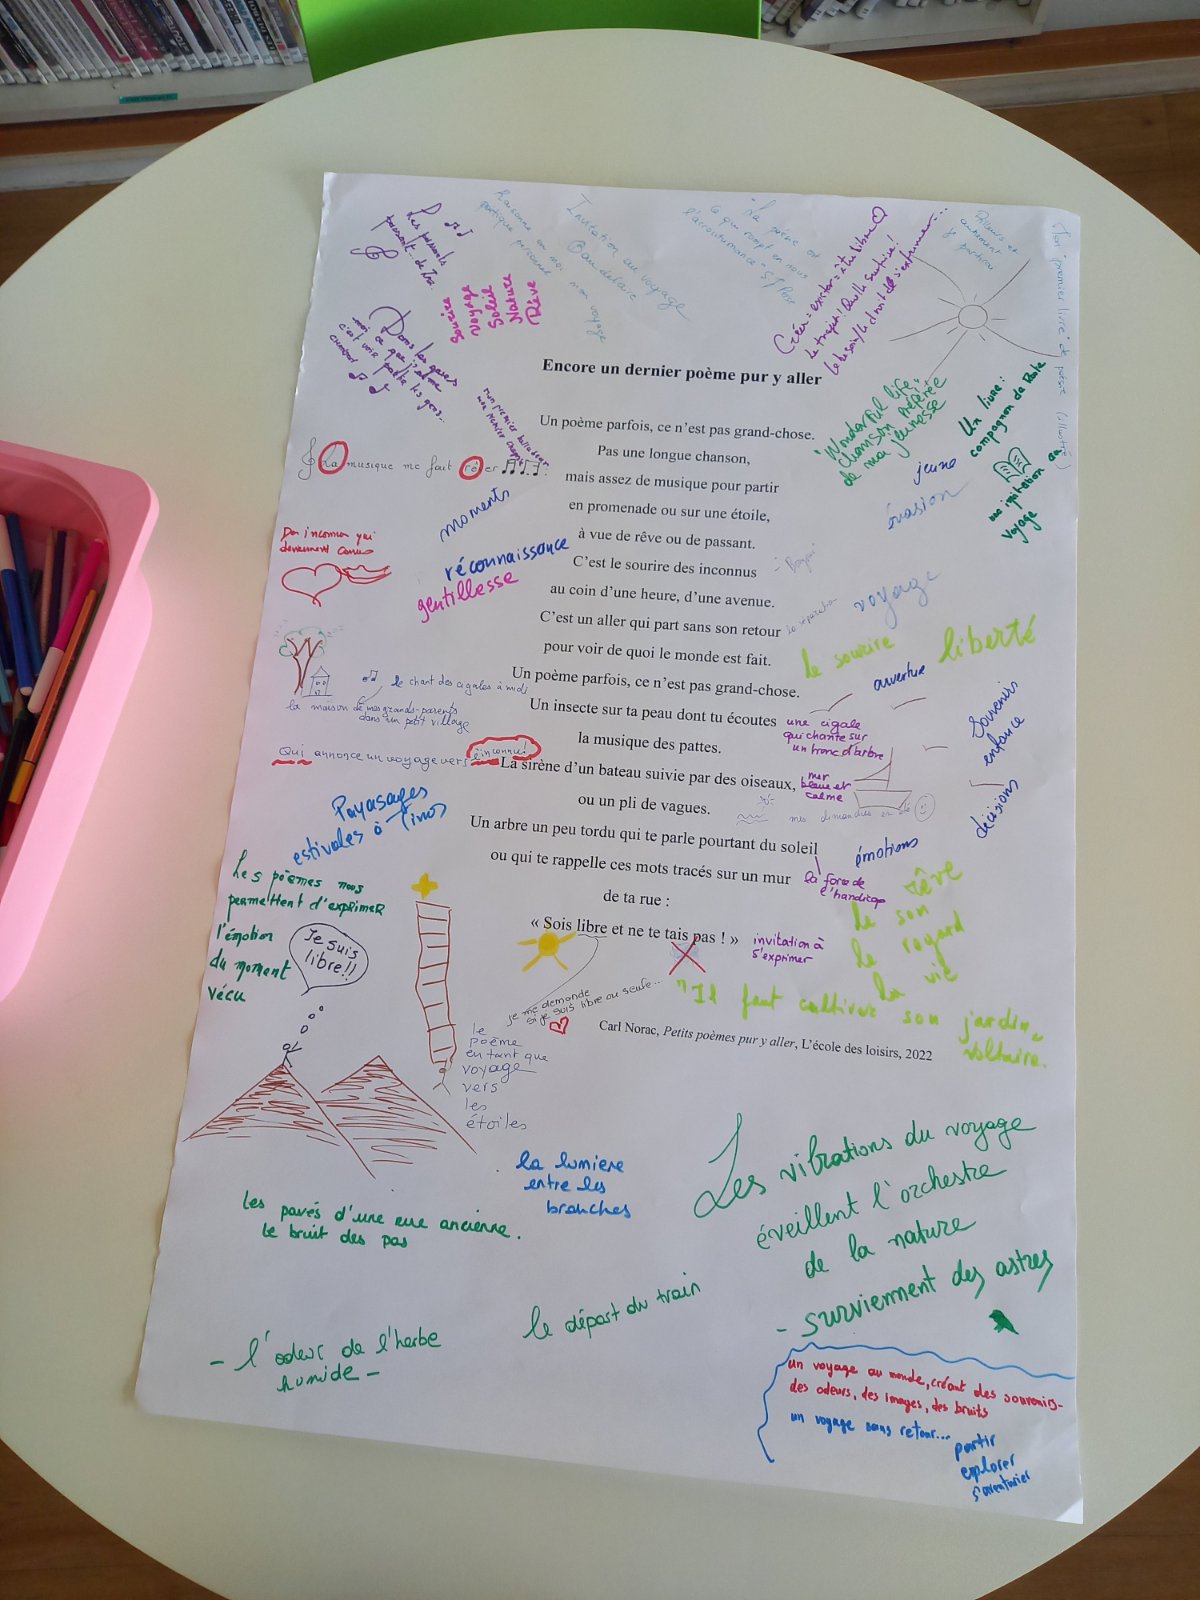 Encore un dernier poème pur y aller
Un poème parfois, ce n'est pas grand-chose.
Pas une longue chanson,
mais assez de musique pour partir
en promenade ou sur une étoile,
à vue de rêve ou de passant.
C'est le sourire des inconnus
au coin d'une heure, d'une avenue.
C'est un aller qui part sans son retour
pour voir de quoi le monde est fait.
Un poème parfois, ce n'est pas grand-chose.
Un insecte sur ta peau dont tu écoutes
la musique des pattes.
La sirène d'un bateau suivie par des oiseaux,
ou un pli de vagues.
Un arbre un peu tordu qui te parle pourtant du soleil
ou qui te rappelle ces mots tracés sur un mur
de ta rue :
« Sois libre et ne te tais pas ! »
Carl Norac, Petits poèmes pur y aller, L'école des loisirs, 2022
Invitation au voyage
Sourire
Voyage
Soleil
Nature
Rêve
Dans les gares
"Wonderful life",
chanson préférée
de ma jeunesse
Un livre :
compagnon de route
une invitation au
voyage
jeune
évasion
La musique me fait rêver
moments
réconnaissance
gentillesse
Des inconnus qui
deviennent connus
"Bonjour"
la séparation
voyage
le sourire
liberté
ouverture
souvenir
enfance
décisions
le chant des cigales à midi
la maison de mes grands-parents
dans un petit village
une cigale
qui chante sur
un tronc d'arbre
Qui annonce un voyage vers l'inconnu!
mer
bleue et
calme
mes dimanches en été
Paysages
estivales à Tinos
émotions
la force de
l'handicap
rêve
le son
le regard
la vie
Les poèmes nous
permettent d'exprimer
l'émotion
du moment
vécu
Je suis
libre!!
invitation à
s'exprimer
je me demande
si je suis libre ou seule...
"Il faut cultiver son jardin"
Voltaire.
le
poème
en tant que
voyage
vers
les
étoiles
la lumière
entre les
branches
Les pavés d'une rue ancienne.
le bruit des pas
Les vibrations du voyage
éveillent l'orchestre
de la nature
- surviennent des astres
le départ du train
- l'odeur de l'herbe
humide -
un voyage au monde, créant des souvenirs-
des odeurs, des images, des bruits
un voyage sans retour...
partir
explorer
s'aventurier